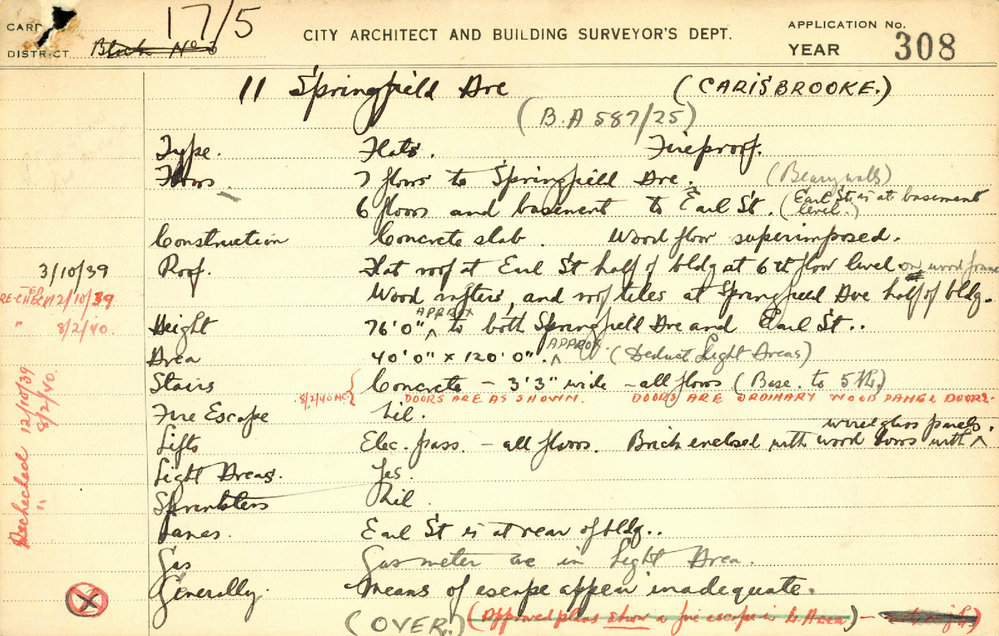 CARD
17/5
CITY ARCHITECT AND BUILDING SURVEYOR'S DEPT.
APPLICATION No.
DISTRICT Block No
YEAR 308
11 Springfield Ave (CARISBROOKE.)
(B.A 587/25)
Type. Flats. Fireproof.
Floors 7 floors to Springfield Ave. (Beary walls)
6 floors and basement to Earl St. (Earl St. is at basement level.)
Construction Concrete slab. Wood floor superimposed.
3/10/39 Roof. Flat roof at Earl St half of bldg at 6th floor level on wood frame
RE-CHECKED 12/10/39 Wood rafters, and roof tiles at Springfield Ave half of bldg.
" 8/2/40.
Height 76'0" APPROX to both Springfield Ave and Earl St..
Area 40'0" x 120'0". APPROX. (Deduct Light Areas)
Stairs Concrete - 3'3" wide - all floors (Base. to 5th.)
8/2/40 DOORS ARE AS SHOWN. DOORS ARE ORDINARY WOOD PANEL DOORS.
Fire Escape Nil.
Lifts Elec. pass. - all floors. Brick enclosed with wood doors with wired glass panels.
Light Areas. Yes.
Sprinklers Nil.
Lanes. Earl St is at rear of bldg..
Gas Gas meter are in Light Area.
Generally. Means of escape appear inadequate.
Rechecked 12/10/39
" 8/2/40.
(OVER.) (Approved plans show a fire escape in Lt. Area) -